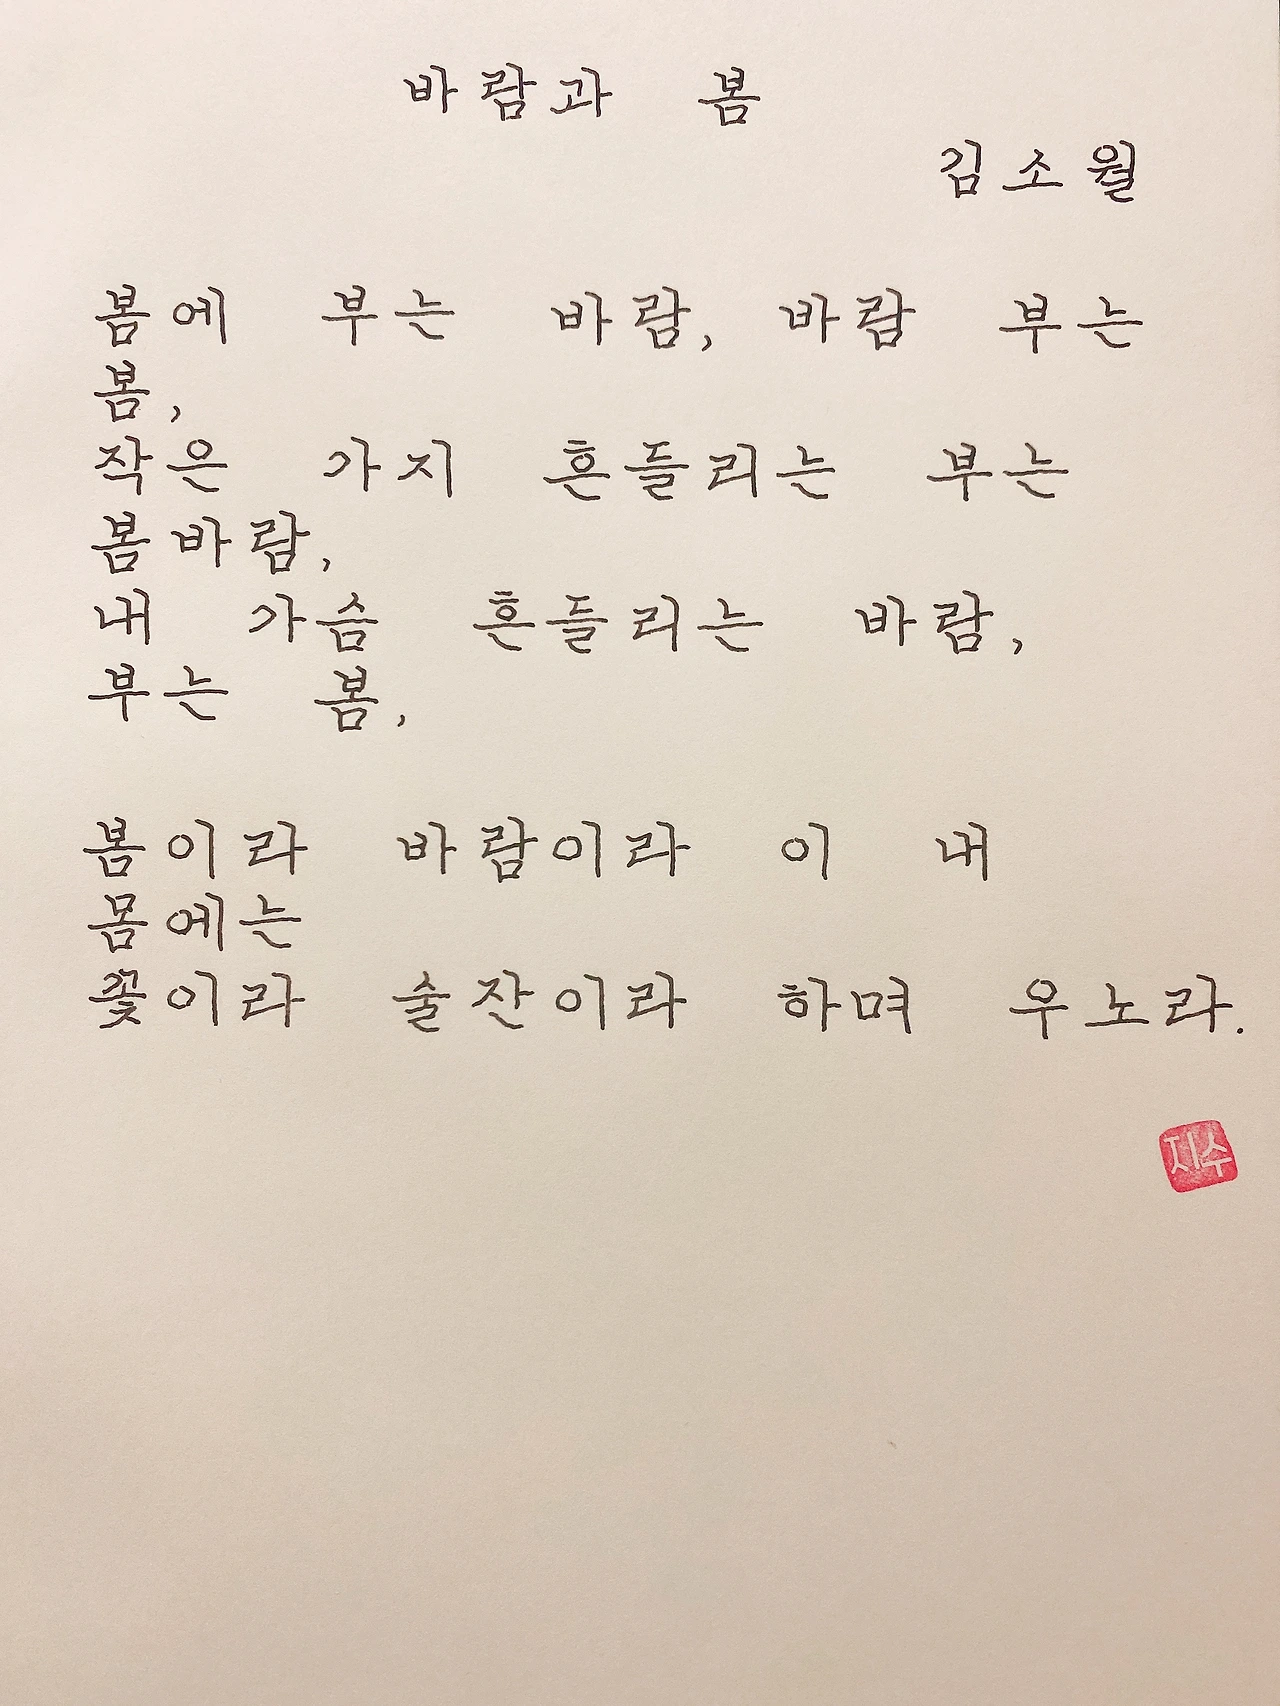 바람과 봄
김소월
봄에 부는 바람, 바람 부는
봄,
작은 가지 흔들리는 부는
봄바람,
내 가슴 흔들리는 바람,
부는 봄,
봄이라 바람이라 이 내
몸에는
꽃이라 술잔이라 하며 우노라.
지수